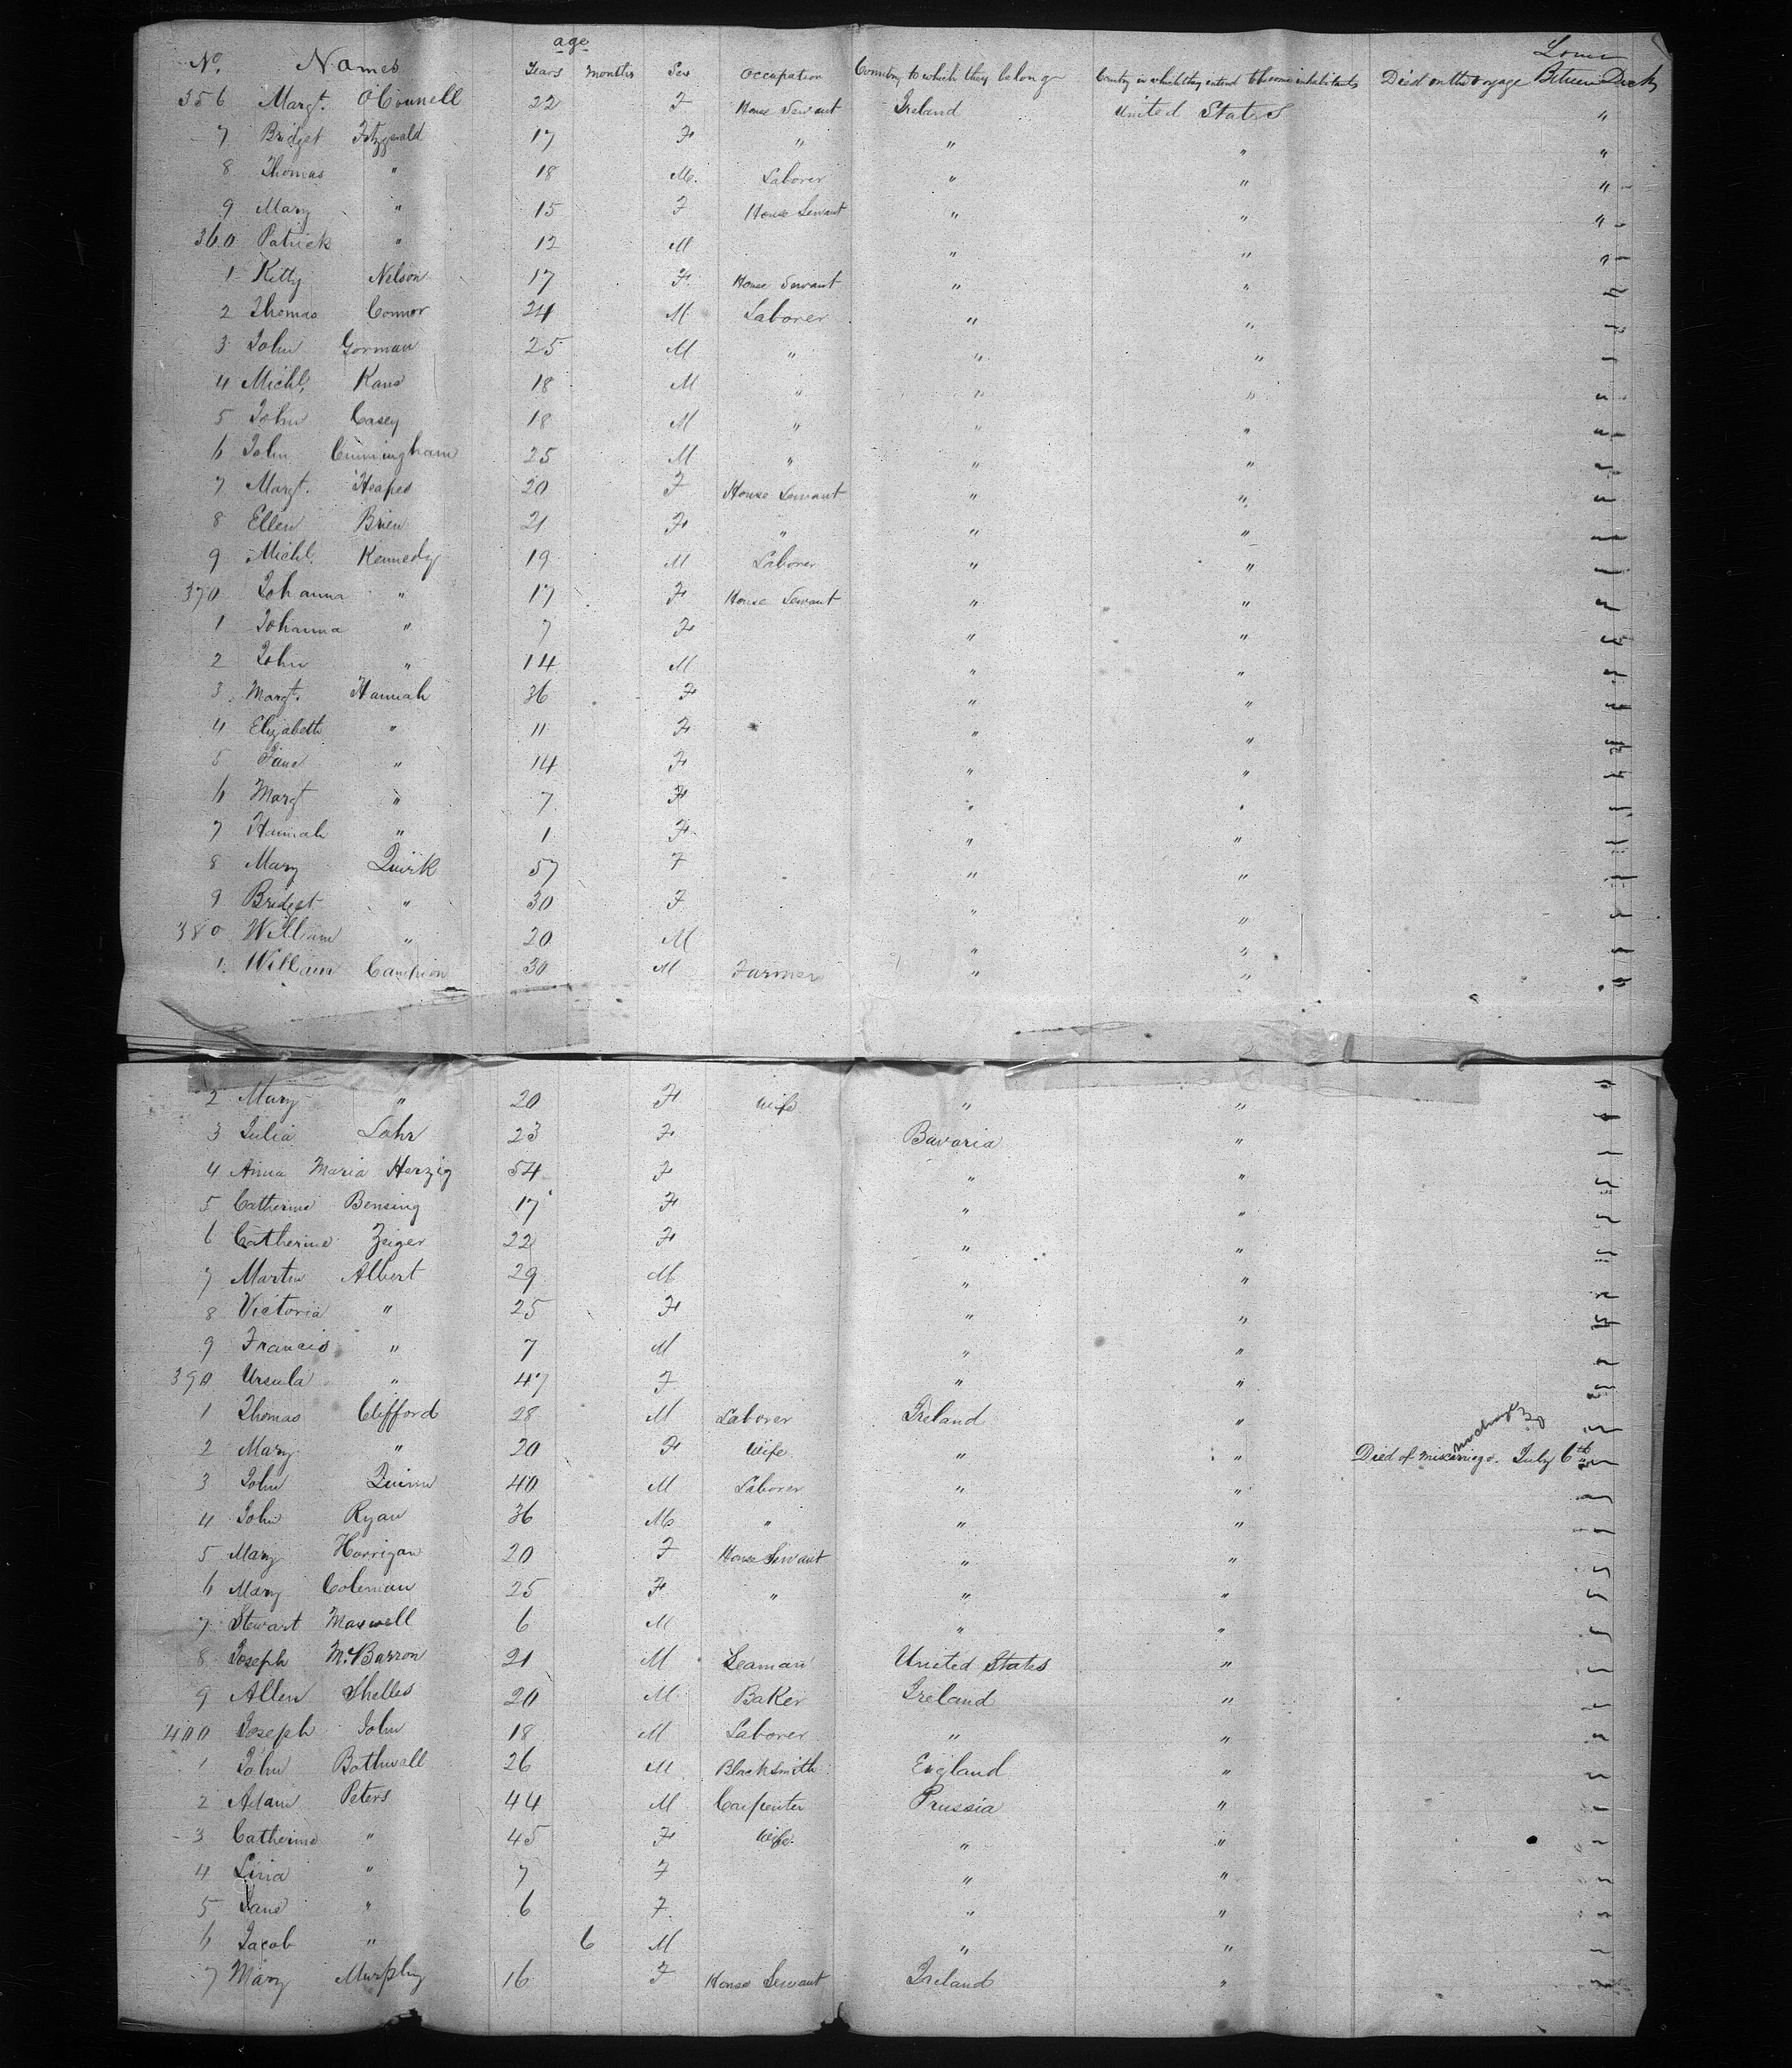 age Lower
No. Names Years Months Sex Occupation Country to which they belong Country in which they intend to become inhabitants Died on the voyage Between Deck
356 Margt. O'Connell 22 F House Servant Ireland United States "
7 Bridget Fitzgerald 17 F " " " "
8 Thomas " 18 M. Laborer " " "
9 Mary " 15 F House Servant " " "
360 Patrick " 12 M " " "
1 Kitty Nelson 17 F. House Servant " "
2 Thomas Connor 24 M Laborer " "
3 John Gorman 25 M " " "
4 Michl. Kane 18 M " " "
5 John Casey 18 M " " "
6 John Cunningham 25 M " " "
7 Margt. Heapes 20 F House Servant " "
8 Ellen Brien 21 F " " "
9 Michl. Kennedy 19 M Laborer " "
370 Johanna " 17 F House Servant " "
1 Johanna " 7 F " "
2 John " 14 M " "
3 Margt. Hannah 36 F " "
4 Elizabeth " 11 F " "
5 Jane " 14 F " "
6 Margt " 7 F " "
7 Hannah " 1 F " "
8 Mary Quirk 57 F " "
9 Bridget " 30 F " "
380 William " 20 M " "
1 William Campion 30 M Farmer " "
2 Mary " 20 F Wife " "
3 Julia Lahr 23 F Bavaria "
4 Anna Maria Herzig 54 F " "
5 Catherine Bensing 17 F " "
6 Catherine Zeiger 22 F " "
7 Martin Albert 29 M " "
8 Victoria " 25 F " "
9 Francis " 7 M " "
390 Ursula " 47 F " "
1 Thomas Clifford 28 M Laborer Ireland "
2 Mary " 20 F Wife " " Died of miscarriage. July 6th
3 John Quinn 40 M Laborer " "
4 John Ryan 36 M " " "
5 Mary Horrigan 20 F House Servant " "
6 Mary Coleman 25 F " " "
7 Stewart Maxwell 6 M " "
8 Joseph McBarron 21 M Seaman United States "
9 Allen Shelles 20 M Baker Ireland "
400 Joseph John 18 M Laborer " "
1 John Bothwell 26 M Blacksmith England "
2 Adam Peters 44 M Carpenter Prussia "
3 Catherine " 45 F Wife. " "
4 Lina " 7 F " "
5 Jane " 6 F. " "
6 Jacob " 6 M " "
7 Mary Murphy 16 F House Servant Ireland "